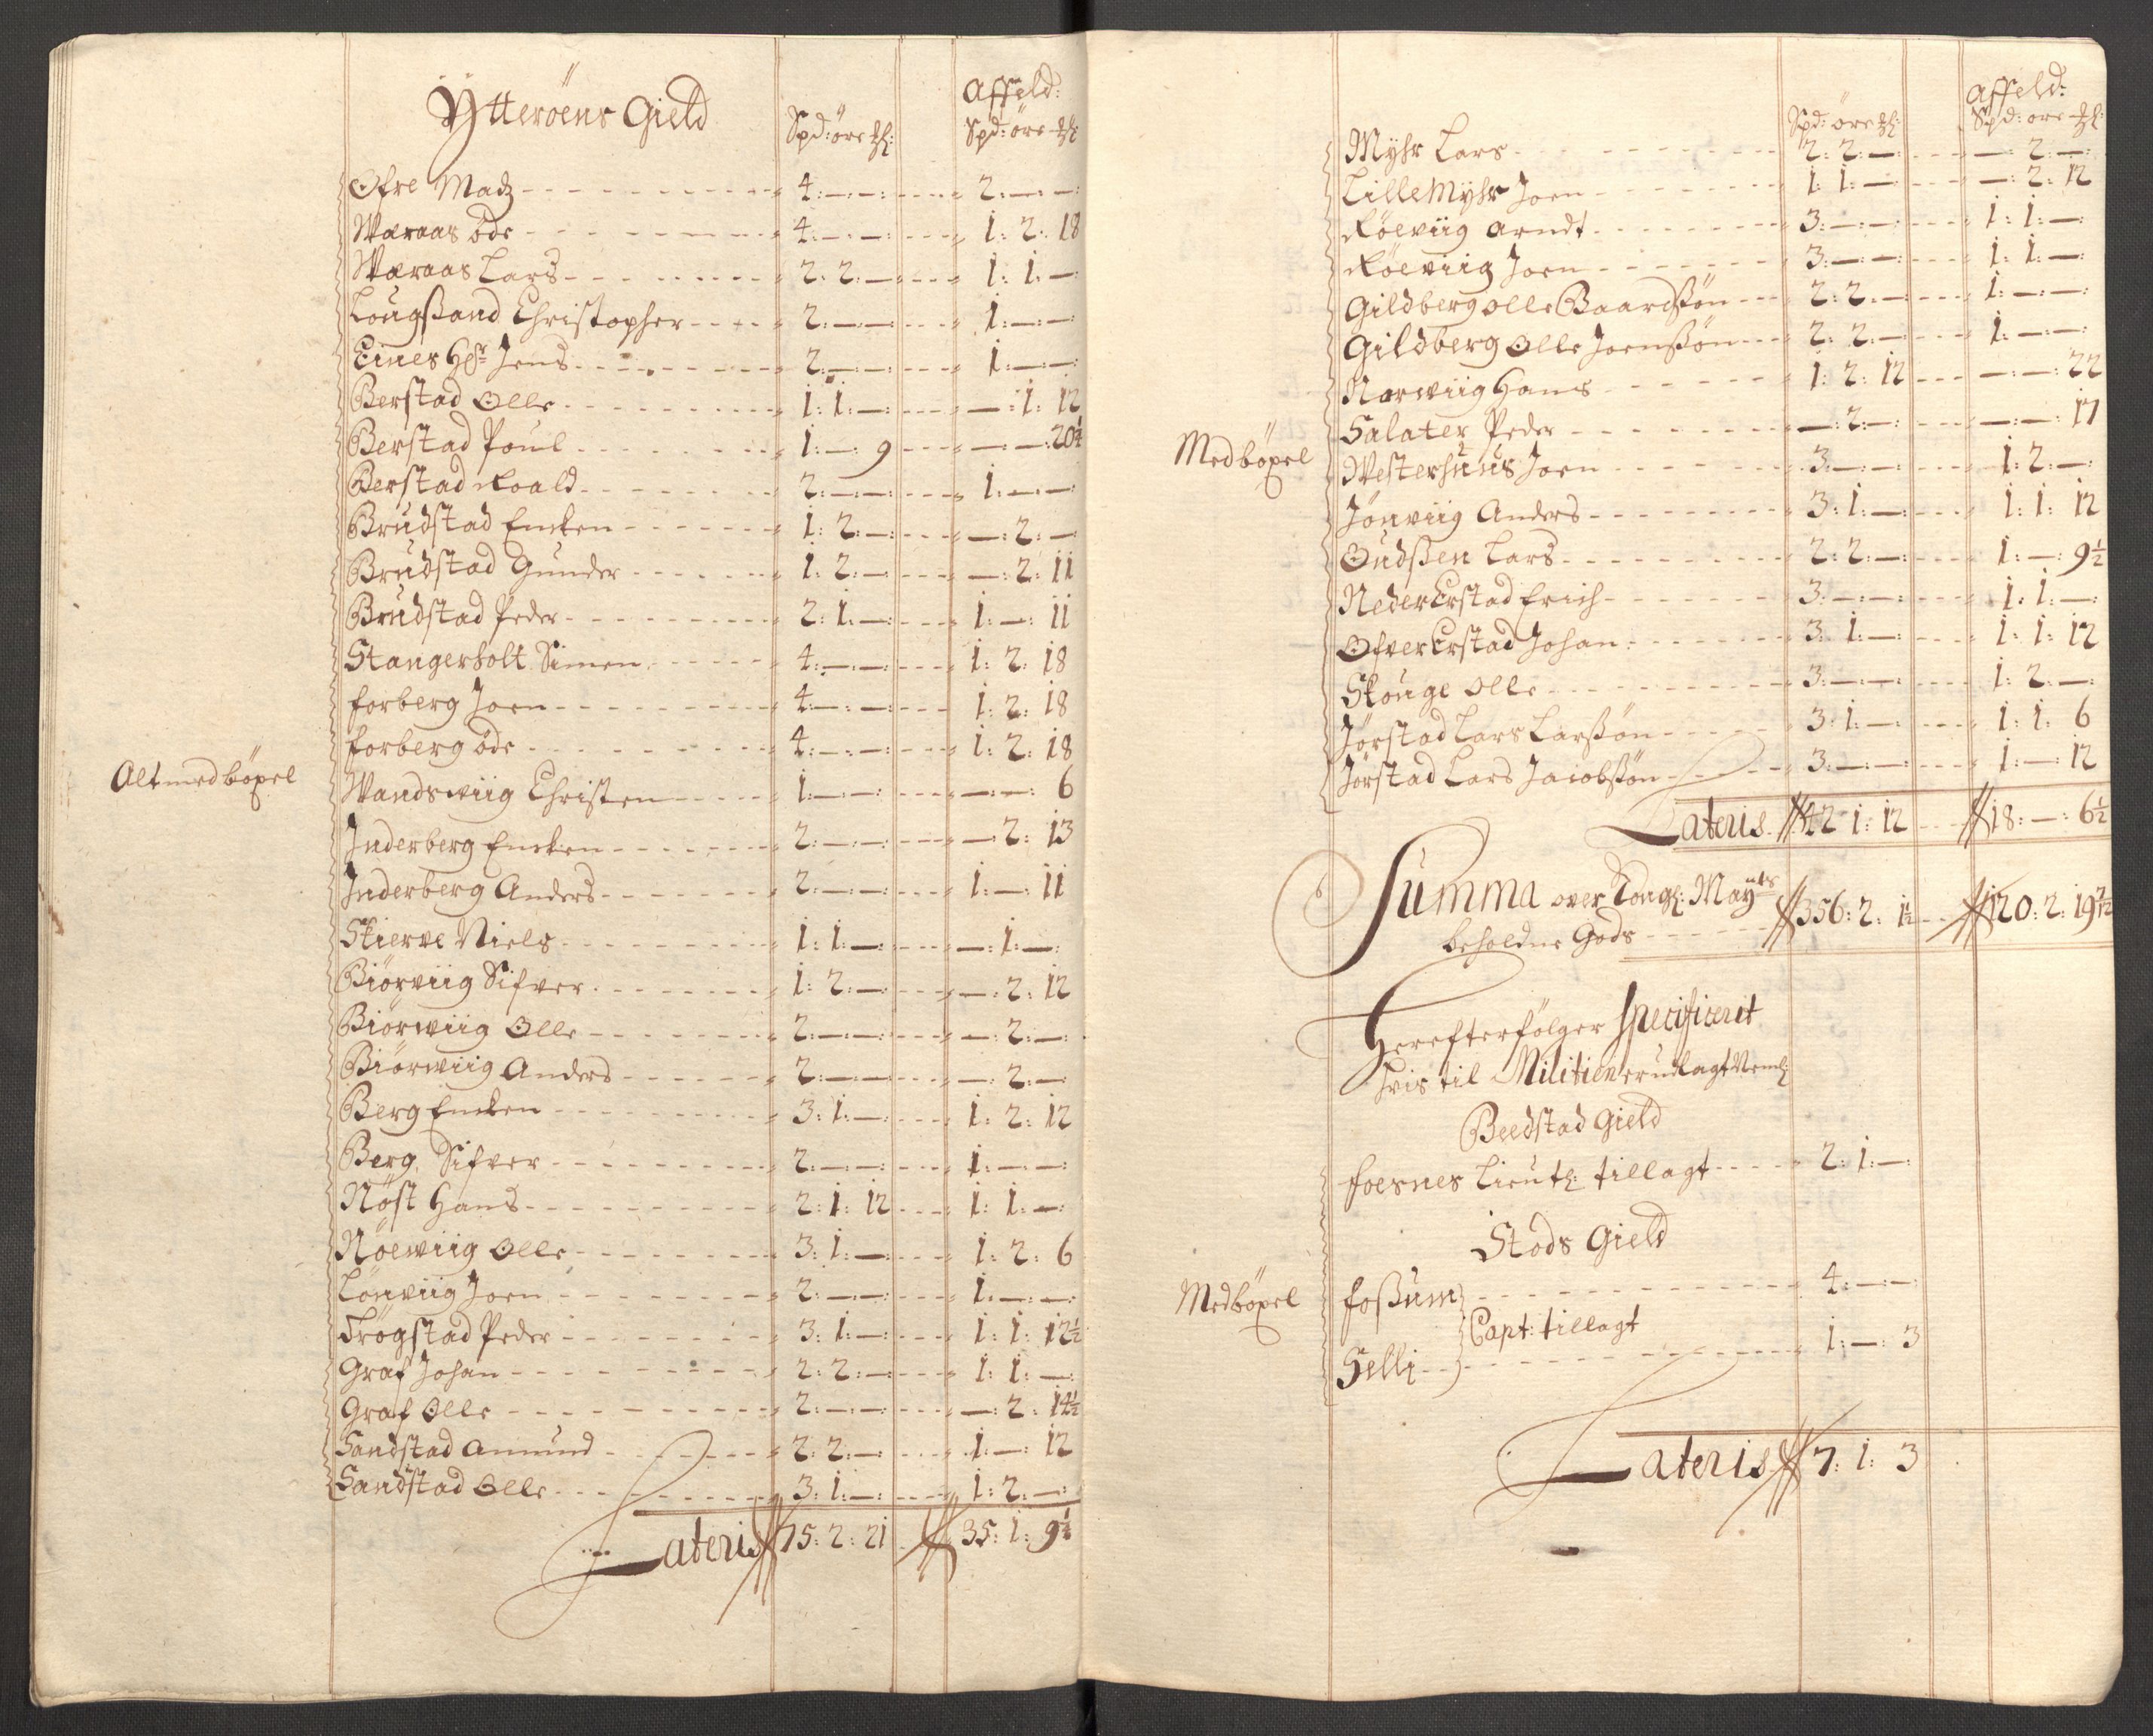 Ytterøens Gield
Affeld:
Spd: øre ₰: Spd: øre ₰
Ofre Madz 4:—:—: 2:—:—
Wæraas øde 4:—:—: 1: 2: 18
Wæraas Lars 2: 2:— 1: 1:—
Lougsand Christopher 2:—:— 1:—:—
Eines Hr Jens 2:—:— 1:—:—
Berstad Olle 1: 1:— —: 1: 12
Berstad Poul 1:—: 9 —:—: 20½
Berstad Roald 2:—:— 1:—:—
Brudstad Encken 1: 2:— —: 2:—
Brudstad Gunder 1: 2:— —: 2: 11
Brudstad Peder 2: 1:— 1:—: 11
Stangerholt Simen 4:—:— 1: 2: 18
forberg Joen 4:—:— 1: 2: 18
forberg øde 4:—:— 1: 2: 18
Alt med bøxel Wandswiig Christen 1:—:— —:—: 6
Inderberg Encken 2:—:— —: 2: 13
Inderberg Anders 2:—:— 1:—: 11
Skierve Niels 1: 1:— —: 1:—
Biørviig Sifver 1: 2:— —: 2: 12
Biørwiig Olle 2:—:— —: 2:—
Biørwiig Anders 2:—:— —: 2:—
Berg Encken 3: 1:— 1: 2: 12
Berg Sifver 2:—:— 1:—:—
Nøst Hans 2: 1: 12 1: 1:—
Nøewiig Olle 3: 1:— 1: 2: 6
Lønviig Joen 2:—:— 1:—:—
Trøgstad Peder 3: 1:— 1: 1: 12½
Graf Johan 2: 2:— 1: 1:—
Graf Olle 2:—:— —: 2: 14½
Sandstad Amund 2: 2:— 1:—: 12
Sandstad Olle 3: 1:— 1: 2:—
Lateris 75: 2: 21 35: 1: 9½
Affeld:
Spd: øre ₰: Spd: øre ₰:
Myhr Lars 2: 2:— —: 2:—
Lille Myhr Joen 1: 1:— —: 2: 12
Røeviig Arndt 3:—:— 1: 1:—
Røeviig Joen 3:—:— 1: 1:—
Gildberg Olle Baardsøn 2: 2:— 1:—:—
Gildberg Olle Joensøn 2: 2:— 1:—:—
Norwiig Hans 1: 2: 12 —:—: 22
Salater Peder —: 2:— —:—: 17
Med bøxel Westerhuus Joen 3:—:— 1: 2:—
Jønviig Anders 3: 1:— 1: 1: 12
Oudssen Lars 2: 2:— 1:—: 9½
Neder Erstad Erich 3:—:— 1: 1:—
Ofver Erstad Johan 3: 1:— 1: 1: 12
Skouge Olle 3:—:— 1: 2:—
Jørstad Lars Larsøn 3: 1:— 1: 1: 6
Jørstad Lars Jacobsøn 3:—:— 1:—: 12
Lateris 42: 1: 12 18:—: 6½
Summa over Kongl: Mayts
beholdne Gods 356: 2: 1½ 120: 2: 19 7/12
Herefterfølger Specificerit
hvis til Militien er udlagt Neml:
Beedstad Gield
foesnes Lieut: tillagt 2: 1:—
Stods Gield
Med bøxel fossum 4:—:—
Capt: tillagt
Selli 1:—: 3
Lateris 7: 1: 3